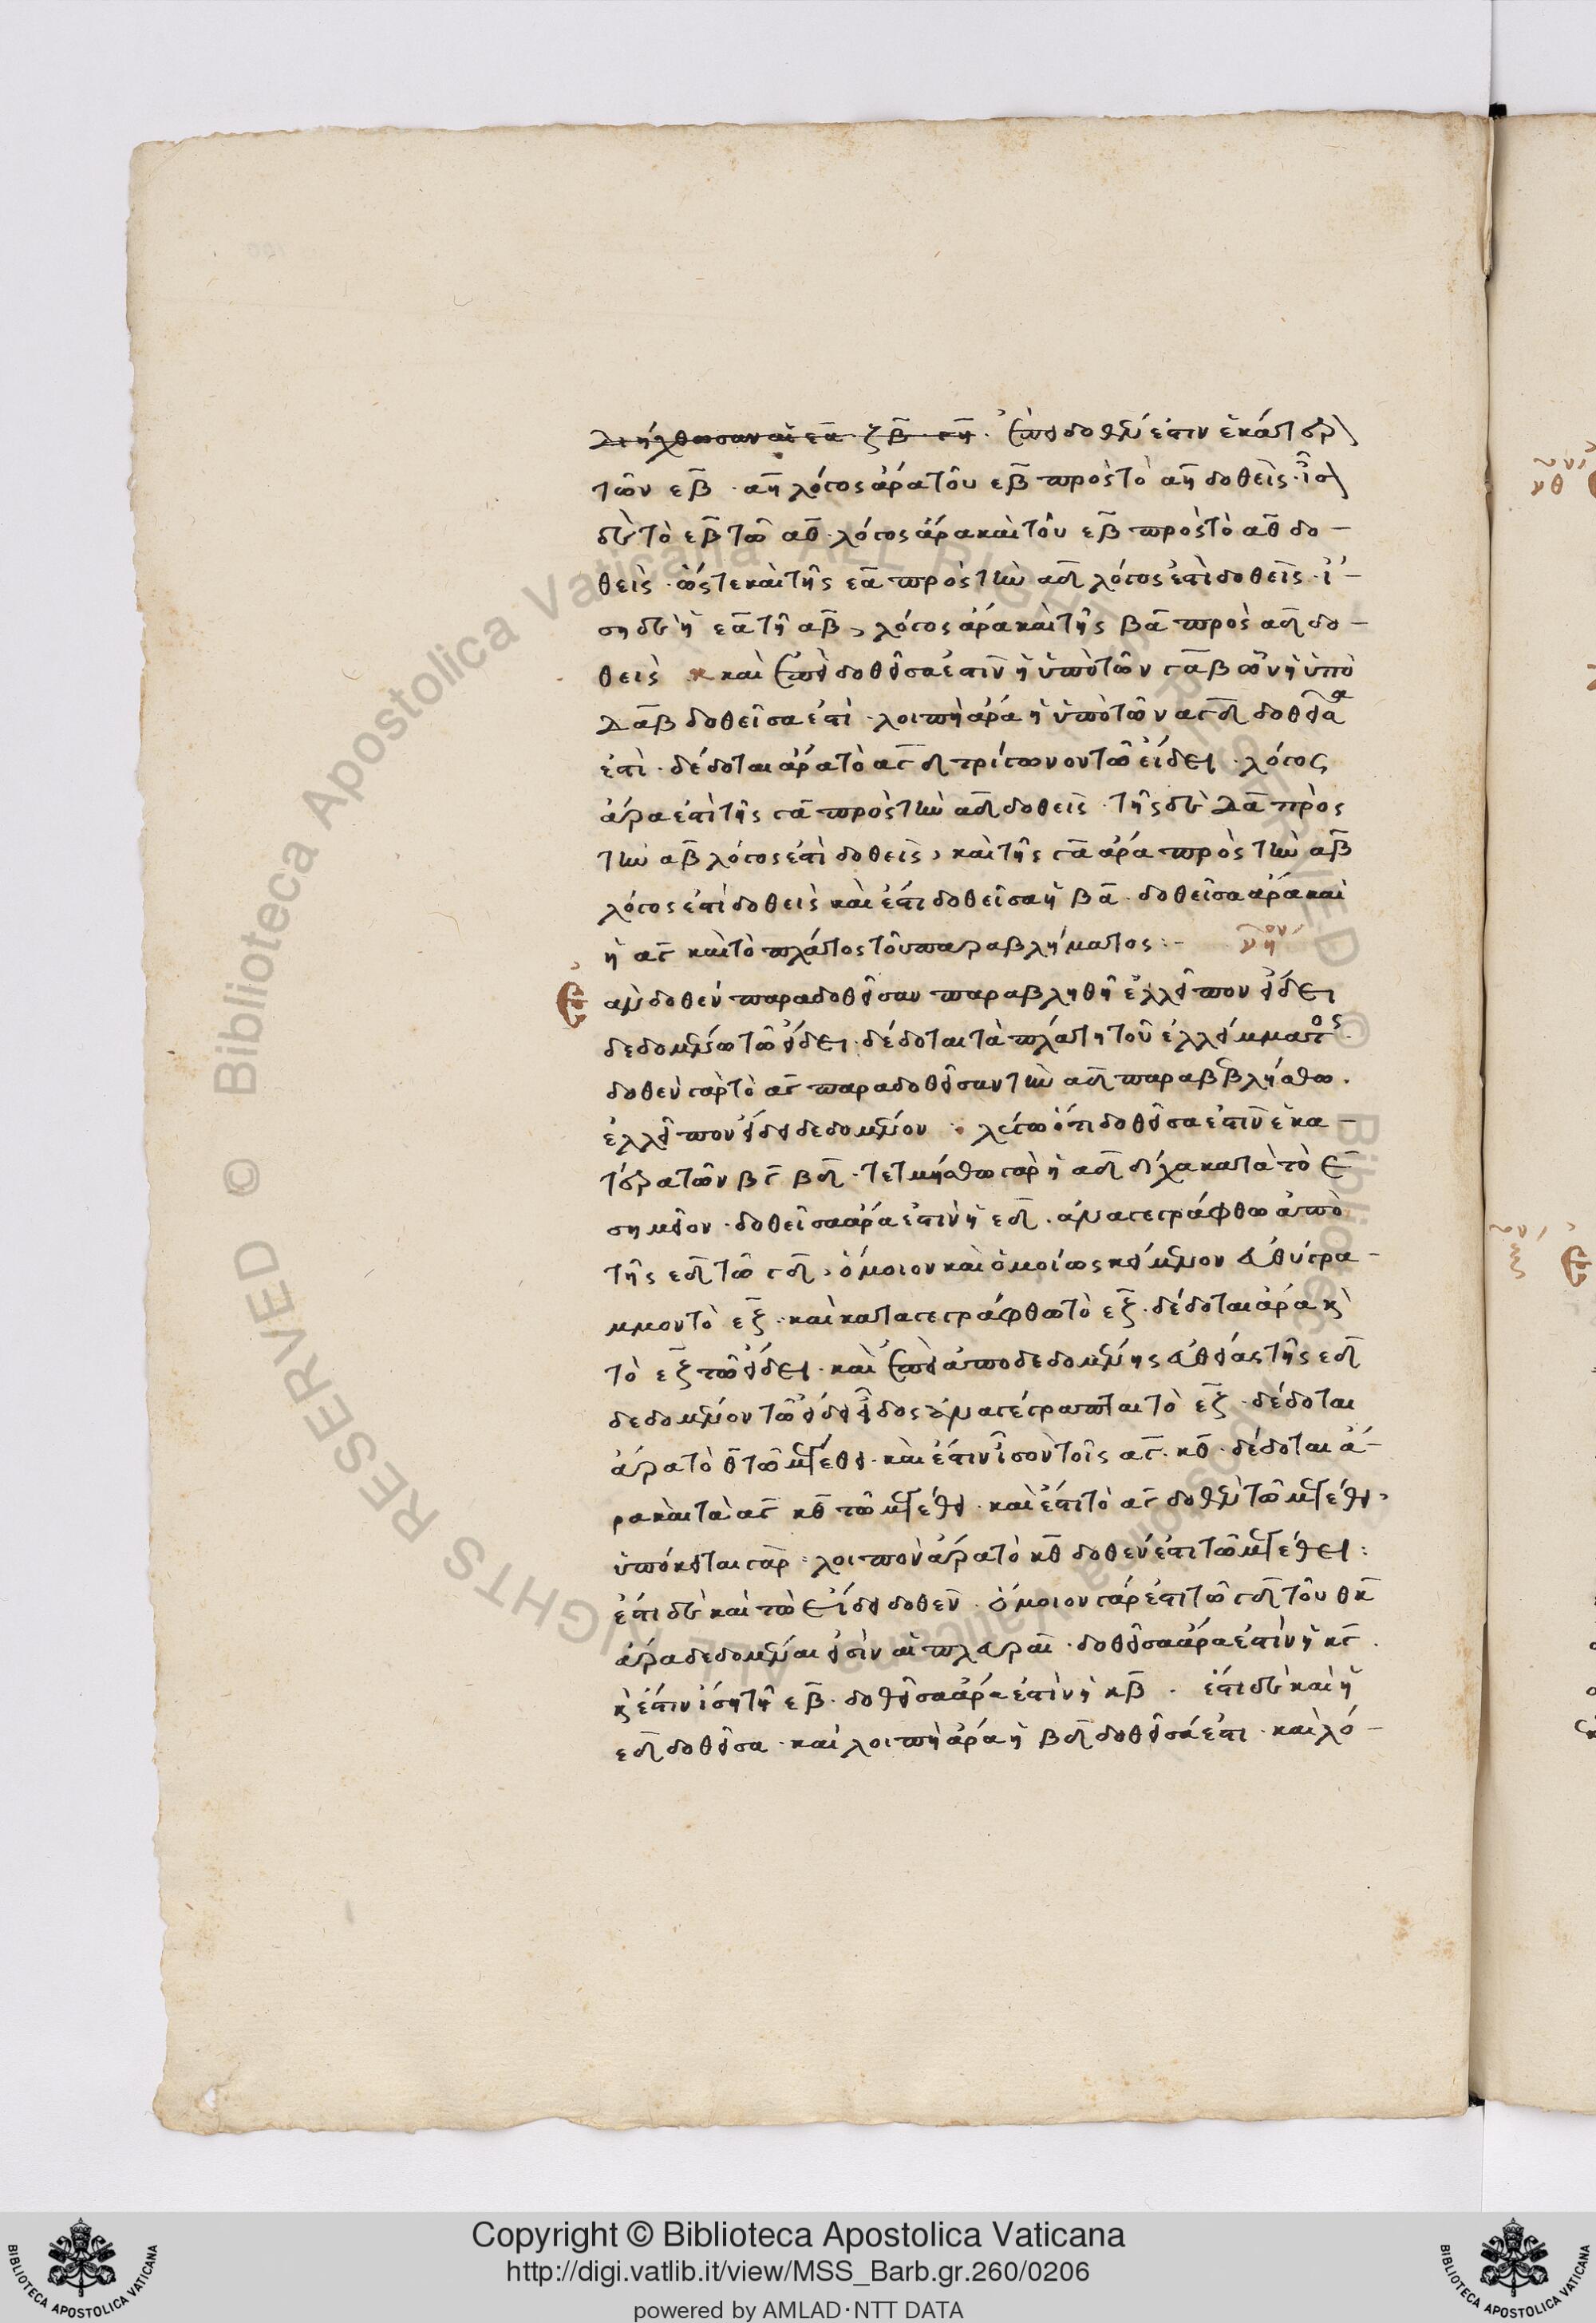 διήχθωσαν αἱ εα ζβ γη. ἐπεὶ δοθέν ἐστιν ἑκάτερ
τῶν εβ · αη λόγος ἄρα τοῦ εβ πρὸς τὸ αη δοθεὶς · ἴσ
δὲ τὸ εβ τῶ αθ · λόγος ἄρα καὶ τοῦ εβ πρὸς τὸ αθ δο–
θεὶς · ὥστε καὶ τῆς εα πρὸς τὴν αδ λόγος ἐστὶ δοθεῖς · ἴ–
ση δὲ ἡ εα τῆ αβ, λόγος ἄρα καὶ τῆς βα πρὸς αδ δο–
θεὶς καὶ ἐπεὶ δοθεῖσα ἐστὶν ἡ ὑπὸ τῶν γαβ ὧν ἡ ὑπὸ
δαβ δοθεῖσα ἐστὶ · λοιπὴ ἄρα ἡ ὑπὸ τῶν αγδ δοθεῖσα
ἐστὶ · δέδοται ἄρα τὸ αγδ τρίγωνον τῶ εἴδει · λόγος
ἄρα ἐστὶ τῆς γα πρὸς τὴν αδ δοθεὶς · τῆς δὲ δα πρὸς
τὴν αβ λόγος ἐστὶ δοθεὶς, καὶ τῆς γα ἄρα πρὸς τὴν αβ
λόγος ἐστὶ δοθεὶς καὶ ἔστι δοθεῖσα ἡ βα · δοθεῖσα ἄρα καὶ
ἡ αγ καὶ τὸ πλάτος τοῦ παραβλήματος :– νη
Ἐὰν δοθὲν παρὰ δοθεῖσαν παραβληθῆ ἐλλεῖπον εἴδει
δεδομένω τῶ εἴδει · δέδοται τὰ πλάτη τοῦ ἐλλείμματος
δοθὲν γὰρ τὸ αγ παρὰ δοθεῖσαν τὴν αδ παραββλήσθω ·
ἐλλεῖπον εἴδει δεδομένον · λέγω ὅτι δοθεῖσα ἐστὶν ἑκα–
τέρα τῶν βγ βδ · τετμήσθω γὰρ ἡ αδ δίχα κατὰ τὸ ε
σημεῖον · δοθεῖσα ἄρα ἐστὶν ἡ εδ · ἀναγεγράφθω ἀπὸ
τῆς εδ τῶ γδ, ὅμοιον καὶ ὁμοίως κείμενον εὐθύγρα–
μμον τὸ εξ · καὶ καταγεγράφθω τὸ εξ · δέδοται ἄρα κὶ
τὸ εξ τῶ εἴδει · καὶ ἐπεὶ ἀπὸ δεδομένης εὐθείας τῆς εδ
δεδομένον τῶ εἴδει εἶδος ἀναγέγραπται τὸ εξ · δέδοται
ἄρα τὸ θ τῶ μεγέθει · καὶ ἔστιν ἴσον τοῖς αγ · κθ · δέδοται ἄ–
ρα καὶ τὰ αγ κθ τῶ μεγέθει · καὶ ἔστι τὸ αγ δοθὲν τῶ μεγέθει,
ὑπόκειται γὰρ · λοιπὸν ἄρα τὸ κθ δοθέν ἐστι τῶ μεγέθει :
ἔστι δὲ καὶ τῶ εἴδει δοθέν · ὅμοιον γάρ ἐστι τῶ γδ τοῦ θκ
ἄρα δεδομέναι εἰσὶν αἱ πλευραί · δοθεῖσα ἄρα ἐστὶν ἡ κγ ·
κὶ ἔστιν ἴση τῆ εβ · δοθεῖσα ἄρα ἐστὶν ἡ κβ · ἔστι δὲ καὶ ἡ
εδ δοθεῖσα · καὶ λοιπὴ ἄρα ἡ βδ δοθεῖσά ἐστι · καὶ λό–
Copyright © Biblioteca Apostolica Vaticana
http://digi.vatlib.it/view/MSS_Barb.gr.260/0206
powered by AMLAD·NTT DATA